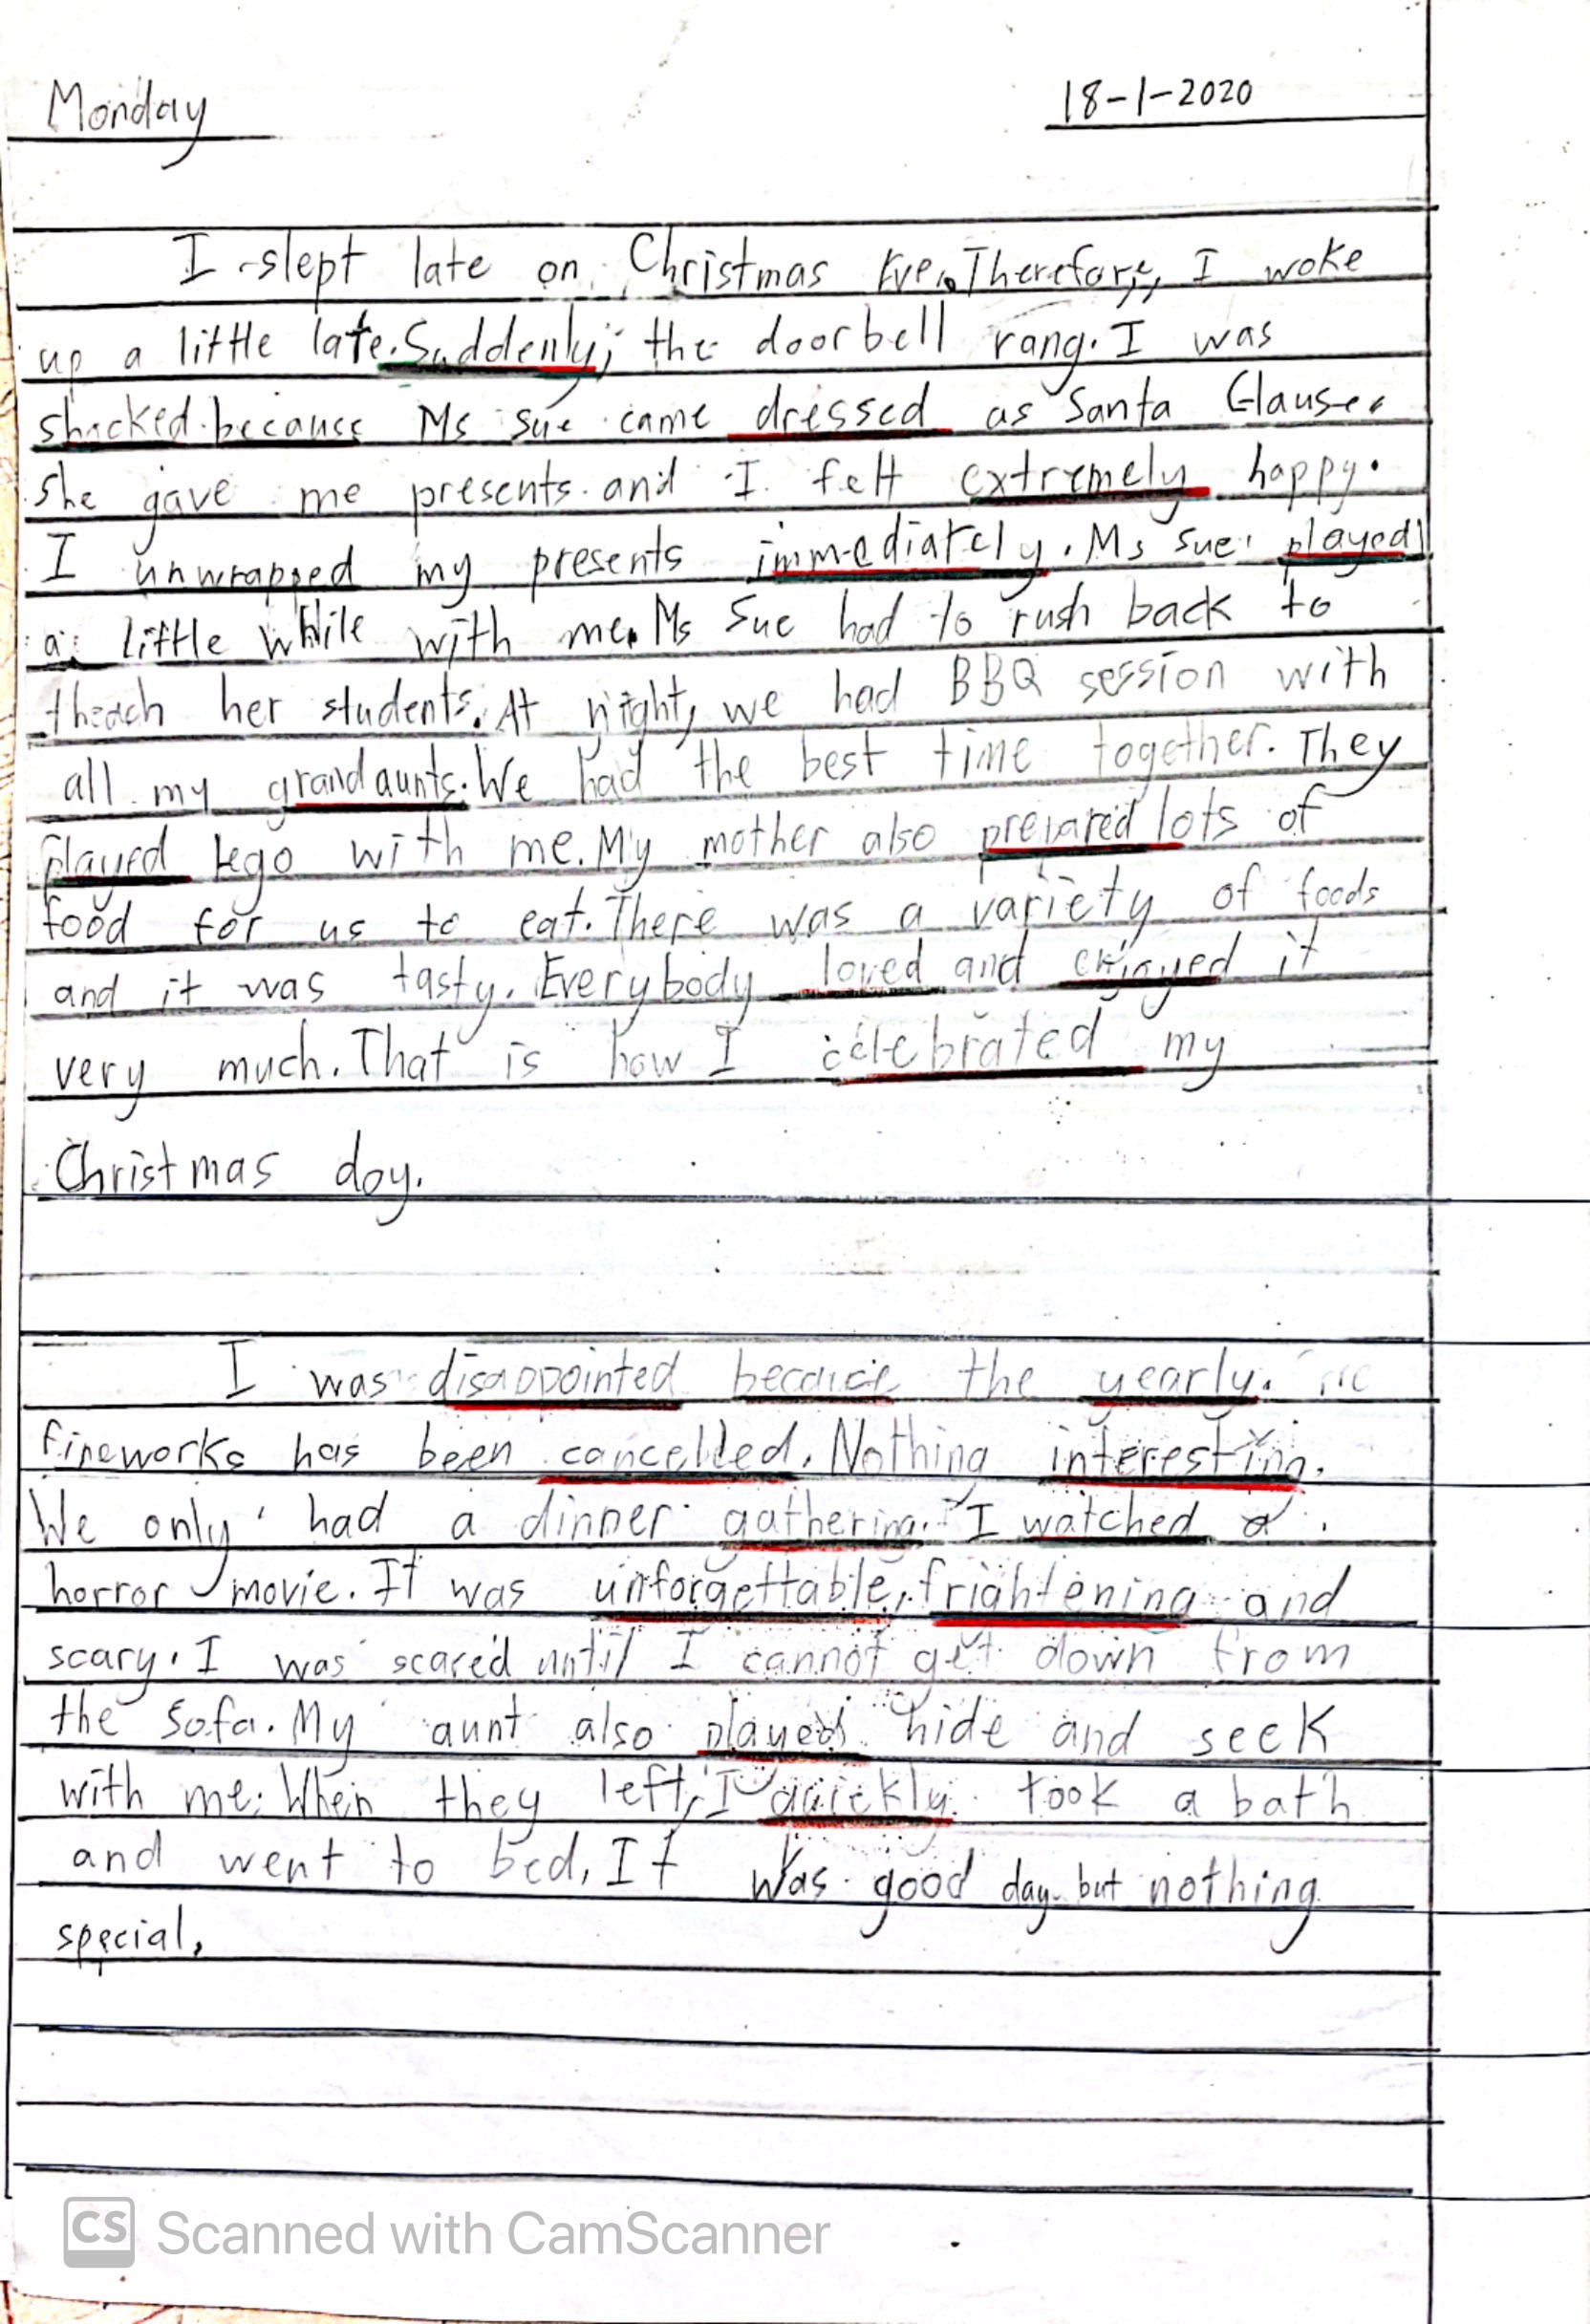 Monday 18-1-2020
I slept late on Christmas Eve. Therefore, I woke
up a little late. Suddenly, the doorbell rang. I was
shocked because Ms sue came dressed as Santa Clause.
She gave me presents and I felt extremely happy.
I unwrapped my presents immediately. Ms sue played
a little while with me. Ms Sue had to rush back to
theach her students. At night, we had BBQ session with
all my grandaunts. We had the best time together. They
played Lego with me. My mother also prepared lots of
food for us to eat. There was a variety of foods
and it was tasty. Everybody loved and enjoyed it
very much. That is how I celebrated my
Christmas day.
I was disappointed because the yearly
fireworks has been cancelled. Nothing interesting.
We only had a dinner gathering. I watched a
horror movie. It was unforgettable, frightening and
scary. I was scared until I cannot get down from
the sofa. My aunt also played hide and seek
with me. When they left, I quickly took a bath
and went to bed. It was good day but nothing
special.
CS Scanned with CamScanner